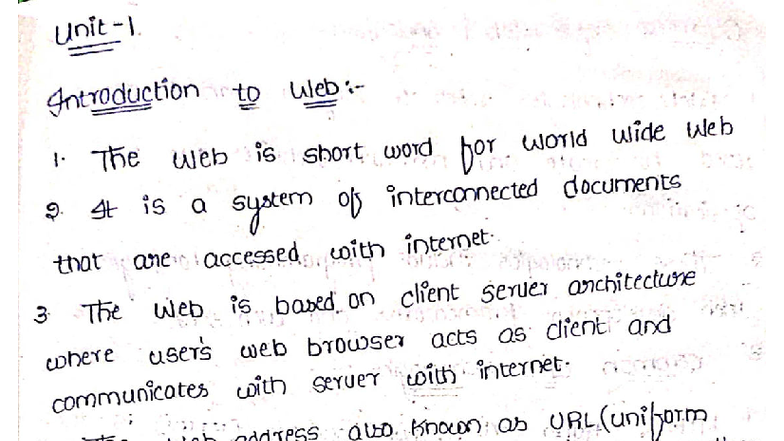 Unit-1.
Introduction to Web:-
1. The web is short word for world wide web
2. It is a system of interconnected documents
that are accessed with internet.
3 The web is based on client server architecture
where user's web browser acts as client and
communicates with server with internet.
address also known as URL(uniform